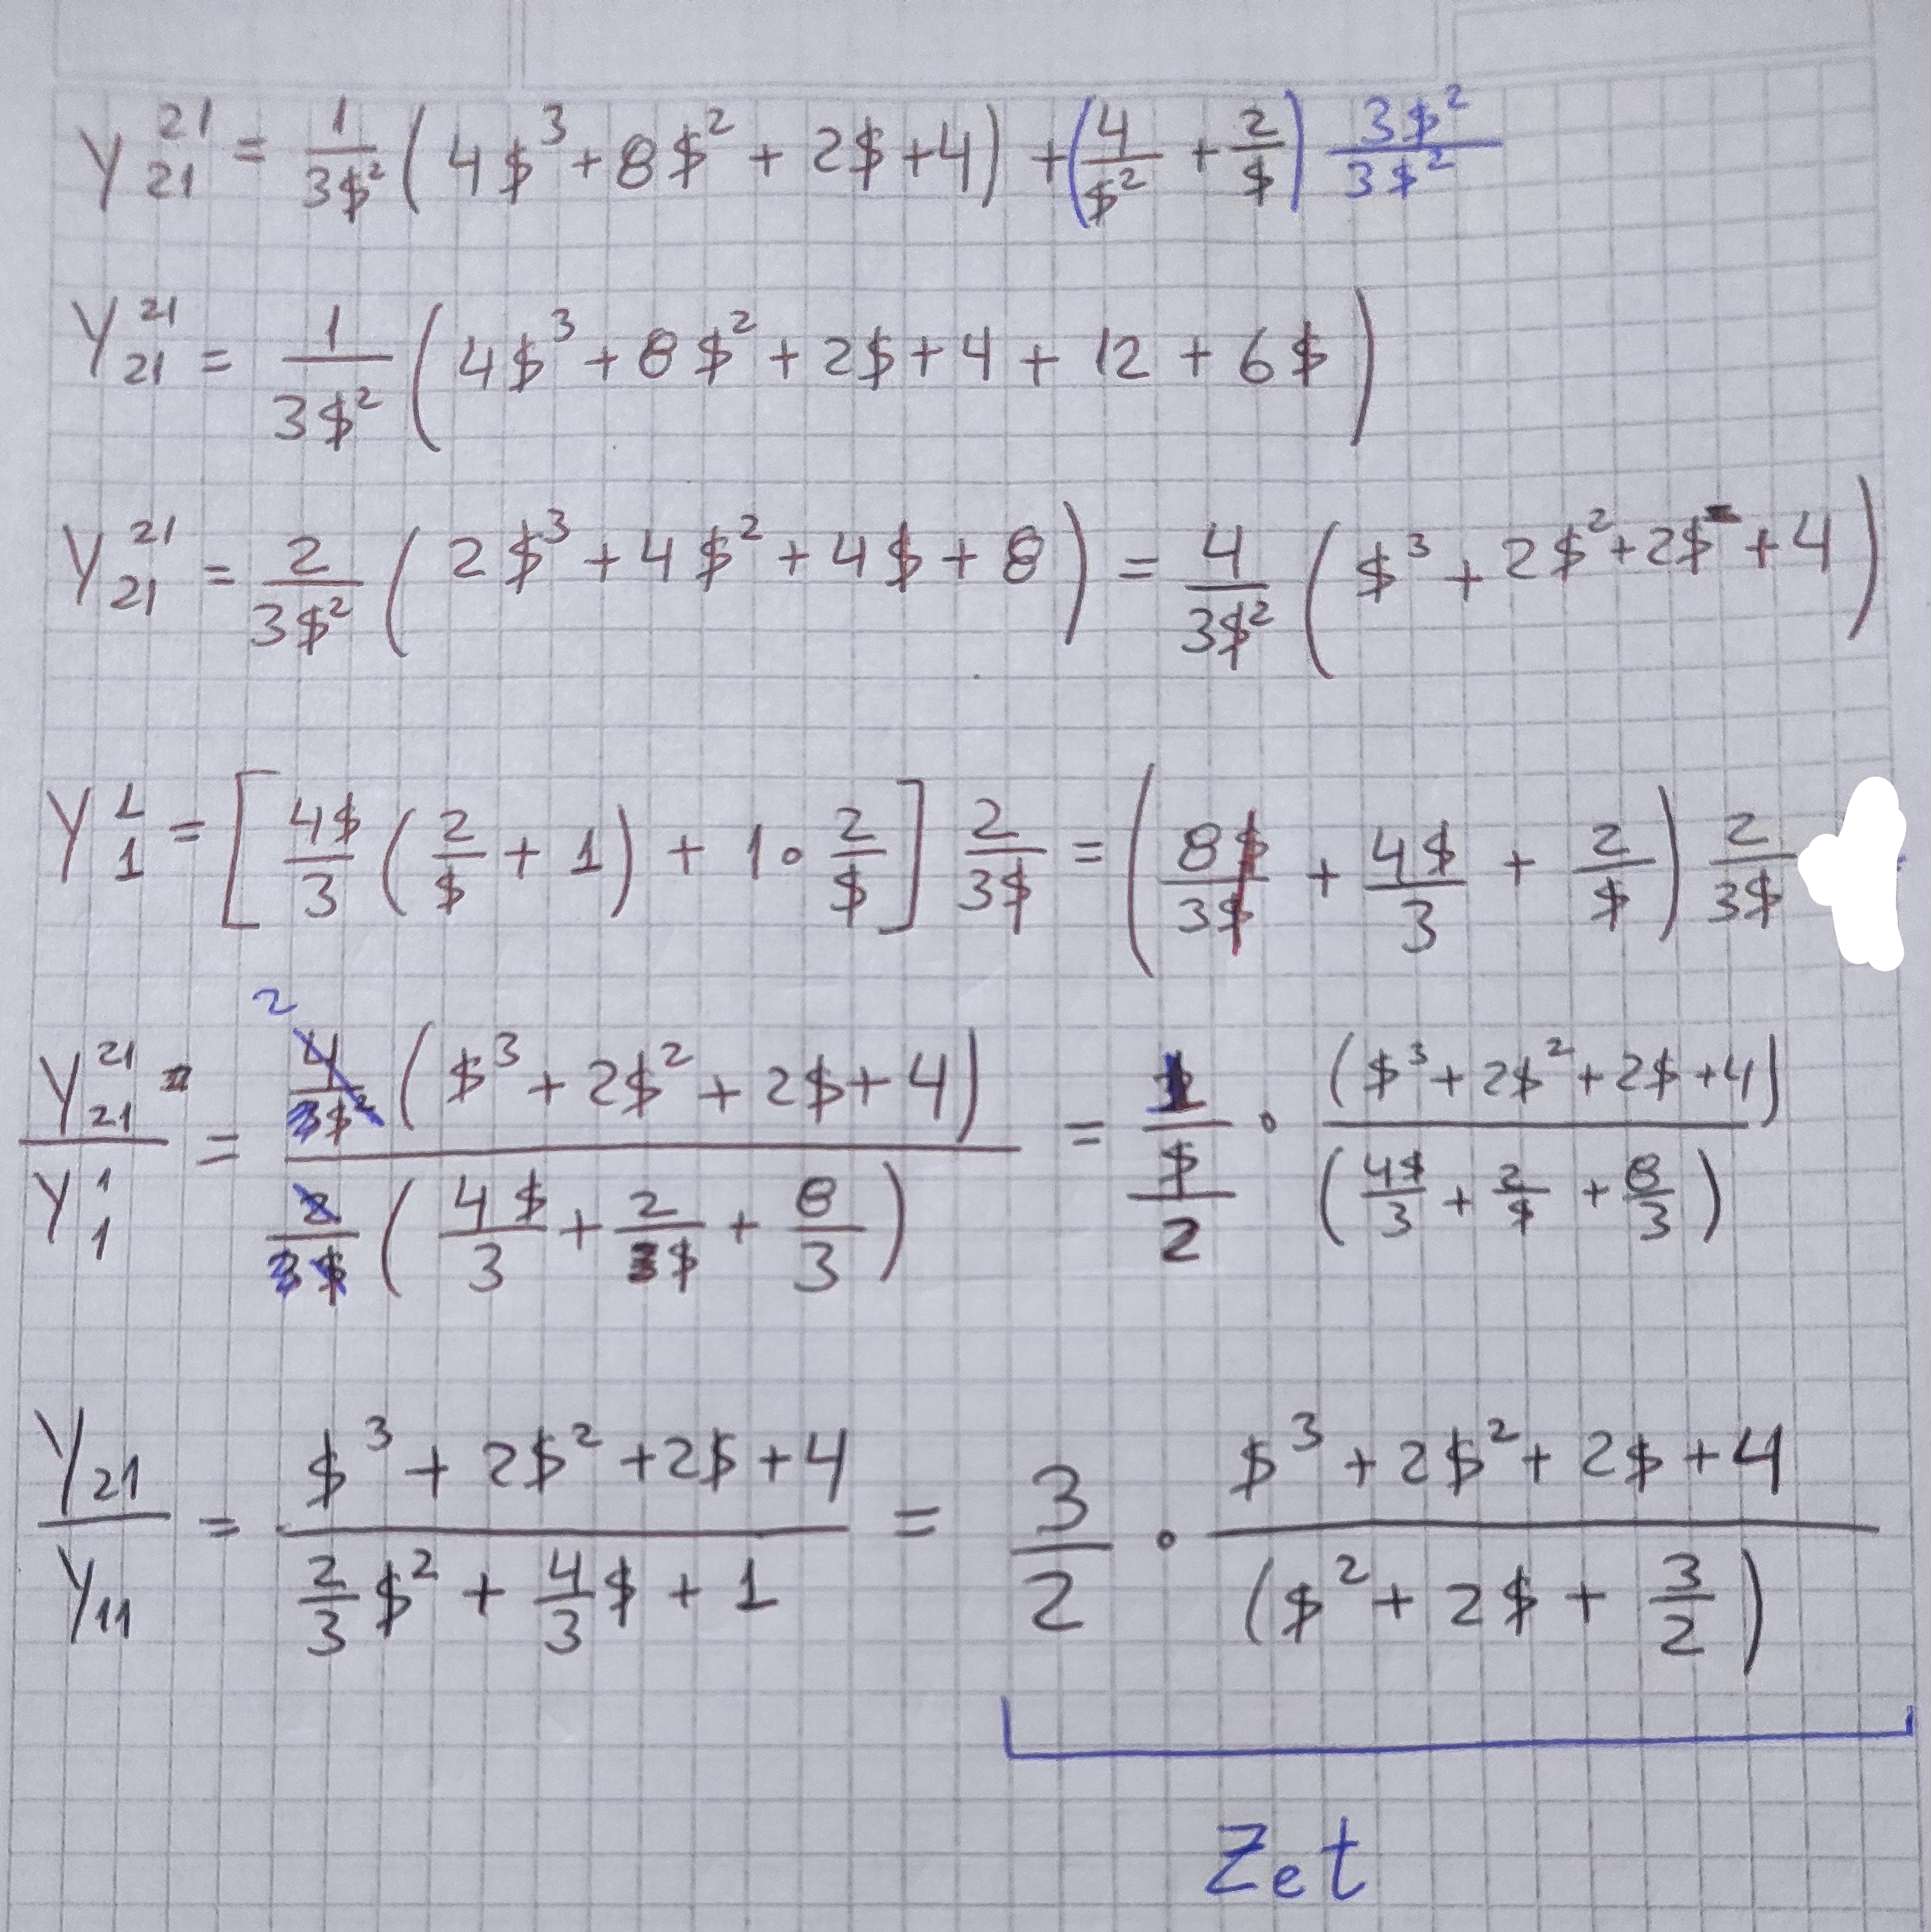 Y₂₁²¹ = 1/(3$²) (4$³ + 8$² + 2$ + 4) + (4/$² + 2/$) 3$²/3$²
Y₂₁²¹ = 1/(3$²) (4$³ + 8$² + 2$ + 4 + 12 + 6$)
Y₂₁²¹ = 2/(3$²) (2$³ + 4$² + 4$ + 8) = 4/(3$²) ($³ + 2$² + 2$ + 4)
Y₁¹ = [4$/3 (2/$ + 1) + 1 · 2/$] 2/(3$) = (8$/3$ + 4$/3 + 2/$) 2/(3$)
Y₂₁²¹/Y₁¹ = 2 4/(3$²) ($³ + 2$² + 2$ + 4) / 2/(3$) (4$/3 + 2/$ + 8/3) = 1/($/2) · ($³ + 2$² + 2$ + 4)/(4$/3 + 2/$ + 8/3)
Y₂₁/Y₁₁ = ($³ + 2$² + 2$ + 4)/(2/3 $² + 4/3 $ + 1) = 3/2 · ($³ + 2$² + 2$ + 4)/($² + 2$ + 3/2)
Zet